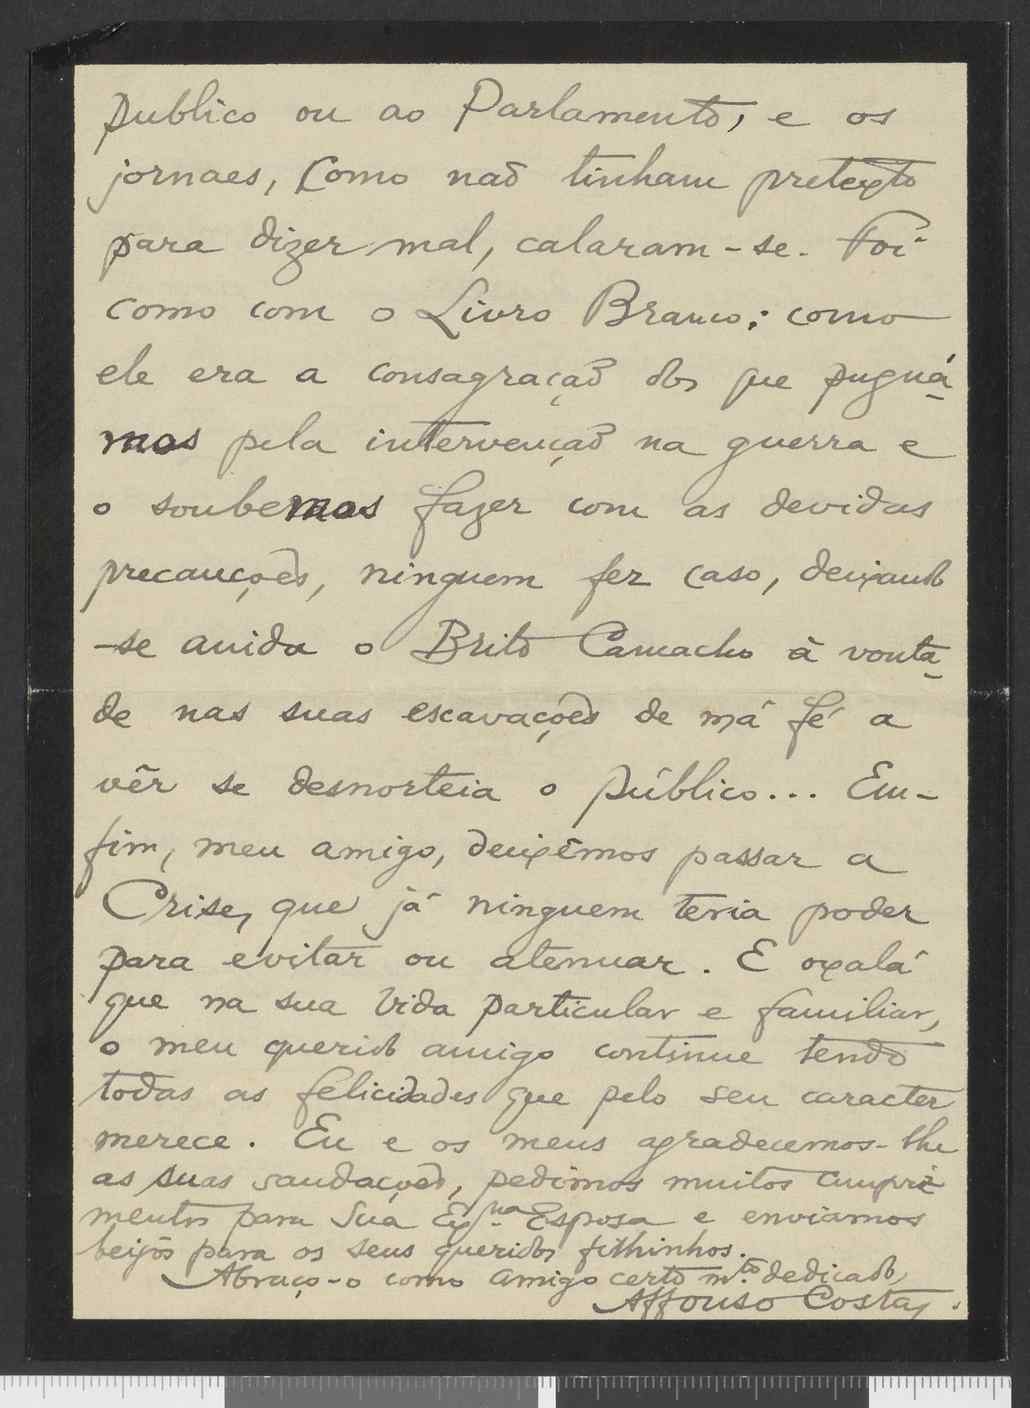 publico ou ao Parlamento, e os
jornaes, como não tinham pretexto
para dizer mal, calaram-se. Foi
como com o Livro Branco; como
ele era a consagração dos que pugná-
mos pela intervenção na guerra e
o soubemos fazer com as devidas
precauções, ninguem fez caso, deixando
-se ainda o Brito Camacho à vonta-
de nas suas escavações de má fé a
vêr se desnorteia o público... Em-
fim, meu amigo, deixêmos passar a
Crise, que já ninguem teria poder
para evitar ou atenuar. E oxalá
que na sua vida particular e familiar,
o meu querido amigo continue tendo
todas as felicidades que pelo seu caracter
merece. Eu e os meus agradecemos-lhe
as suas saudações, pedimos muitos cumpri-
mentos para Sua Exma Esposa e enviamos
beijos para os seus queridos filhinhos.
Abraço-o como amigo certo mto dedicado,
Affonso Costa.